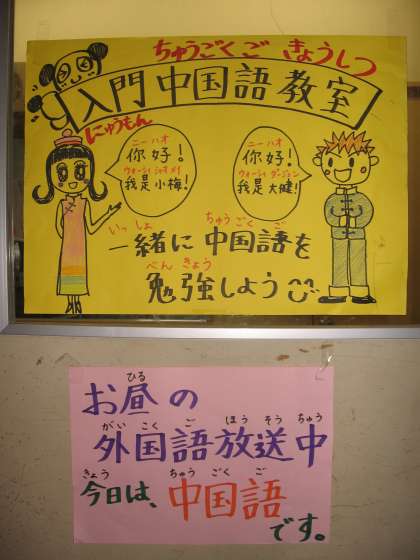 ちゅうごくご きょうしつ
入門 中国語 教室
にゅうもん
ニーハオ
你好!
ウォーシィ シャオメイ
我是小梅!
ニーハオ
你好!
ウォーシィ ダージェン
我是大健!
いっしょ ちゅうごくご
一緒に 中国語を
べんきょう
勉強しよう
ひる
お昼の
がいこくご ほうそうちゅう
外国語放送中
きょう ちゅうごくご
今日は、中国語
です。